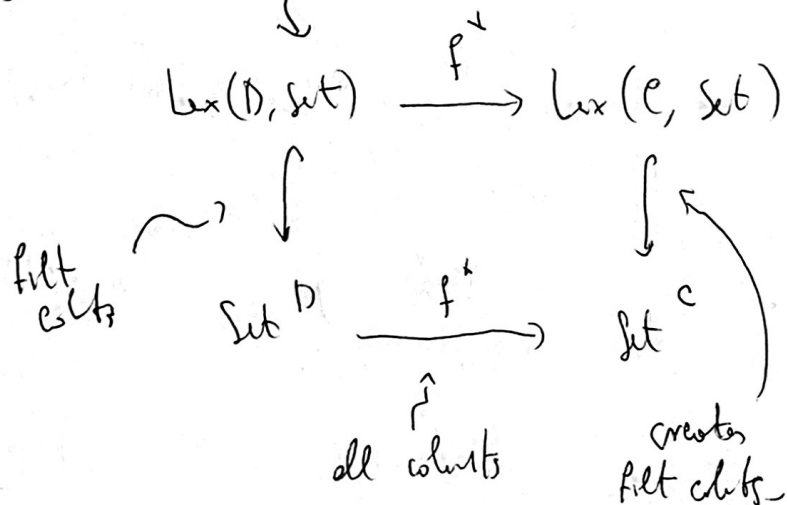 f*
Lex(D, Set) → Lex(C, Set)
filt
colts
Set^D → Set^C
f*
all colimits
creates
filt colts